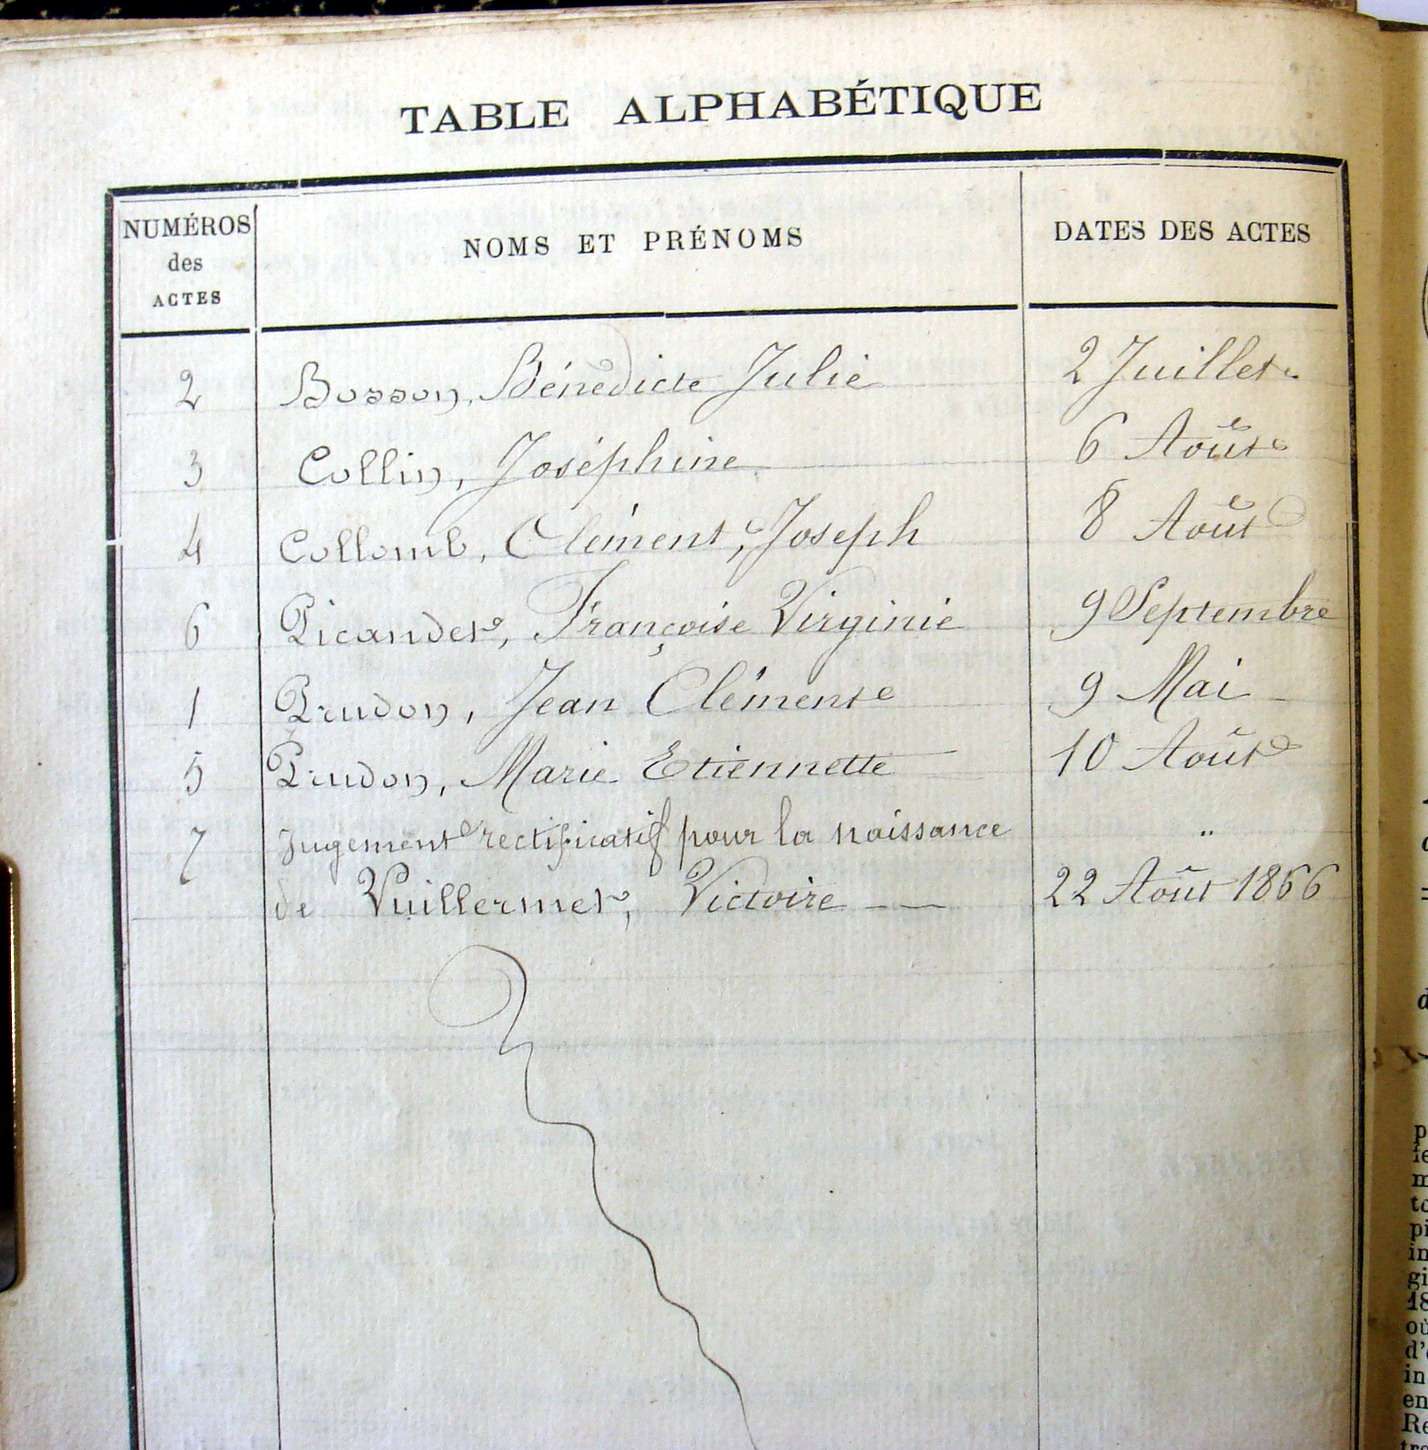 TABLE ALPHABÉTIQUE
NUMÉROS des ACTES NOMS ET PRÉNOMS DATES DES ACTES
2 Bosson, Bénédicte Julie 2 Juillet
3 Collin, Joséphine 6 Août
4 Collomb, Clément, Joseph 8 Août
6 Picandet, Françoise Virginie 9 Septembre
1 Prudon, Jean Clément 9 Mai
5 Prudon, Marie Etiennette 10 Août
7 Jugement rectificatif pour la naissance "
de Vuillermet, Victoire 22 Août 1866